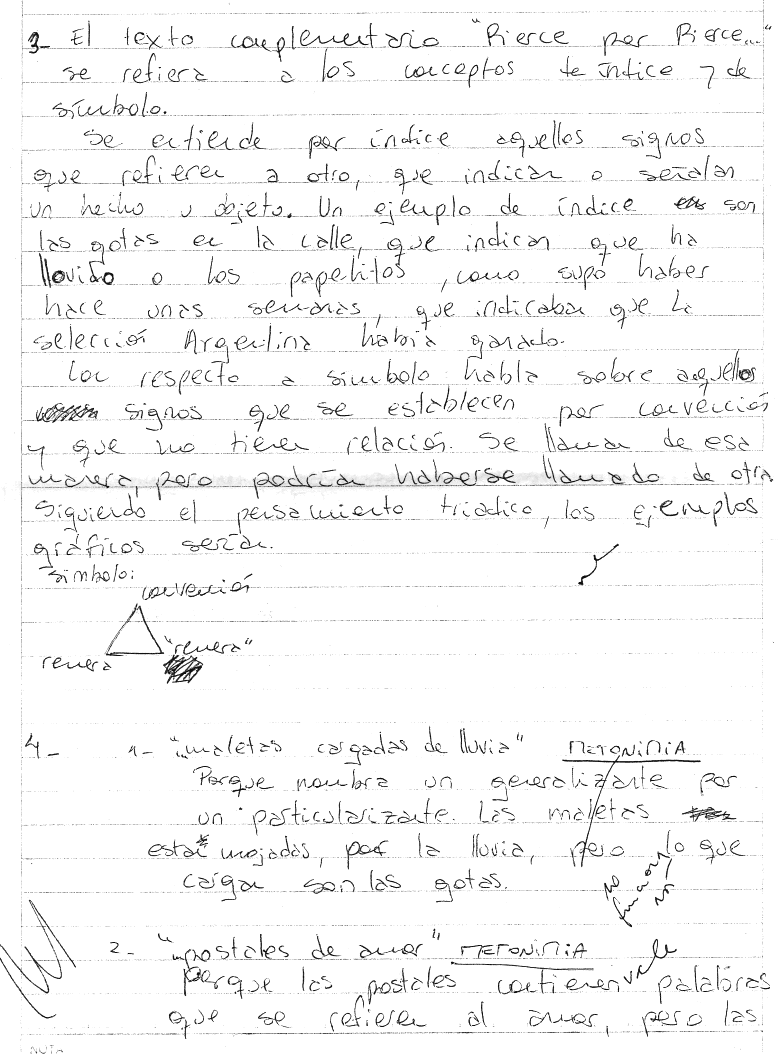 3- El texto complementario "Pierce por Pierce..."
se refiera a los conceptos de índice y de
símbolo.
Se entiende por índice aquellos signos
que refieren a otro, que indican o señalan
un hecho u objeto. Un ejemplo de índice son
las gotas en la calle, que indican que ha
llovido o los papelitos, como supó haber
hace unas semanas, que indicaban que la
selección Argentina había ganado.
Con respecto a símbolo habla sobre aquellos
signos que se establecen por convención
y que no tienen relación. Se llaman de esa
manera, pero podrían haberse llamado de otra
Siguiendo el pensamiento triádico, los ejemplos
gráficos serían.
símbolo:
convención
remera "remera"
4- 1- "...maletas cargadas de lluvia" METONIMIA
Porque nombra un generalizante por
un particularizante. Las maletas
están mojadas, por la lluvia, pero lo que
cargan son las gotas.
no
2- "...postales de amor" METONIMIA
vale
Porque las postales contienen palabras
que se refieren al amor, pero las
NOTA